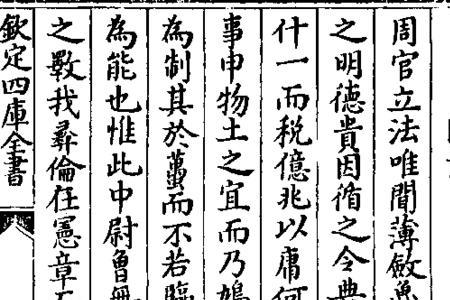 周官立法唯聞薄斂
之明德貴因循之令典
什一而税億兆以庸何
事申物土之宜而乃鳩
為制其於蠆而不若臨
為能也惟此中尉魯無
之斁我彞倫在憲章
欽定四庫全書